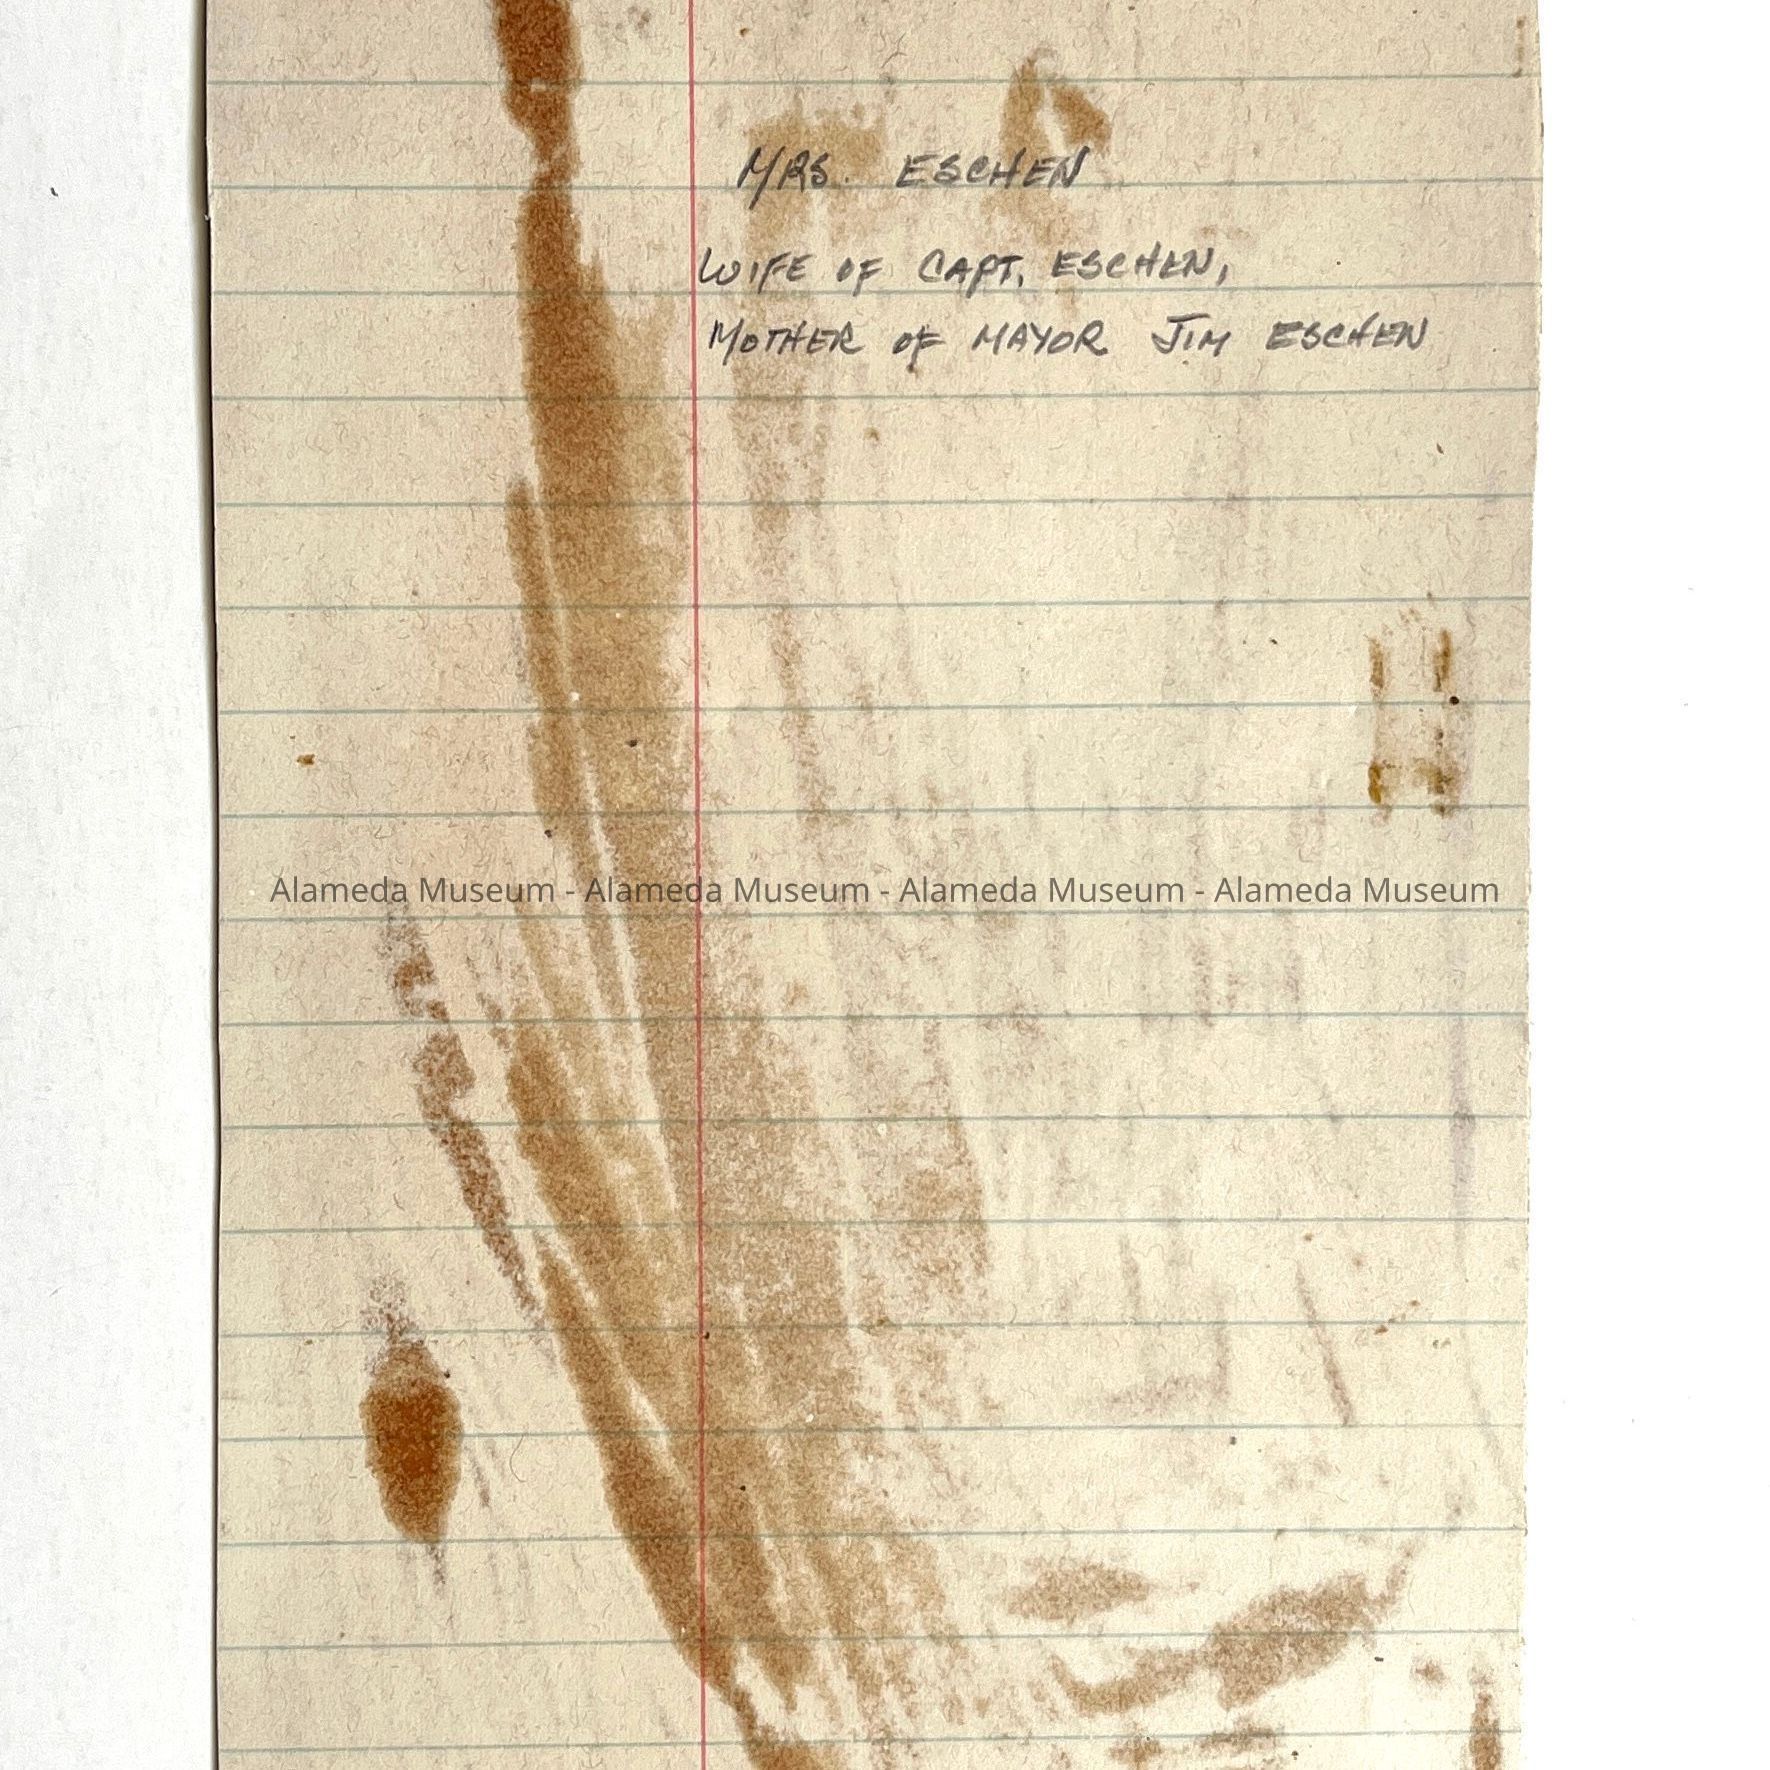 MRS. ESCHEN
WIFE OF CAPT. ESCHEN,
MOTHER OF MAYOR JIM ESCHEN
Alameda Museum - Alameda Museum - Alameda Museum - Alameda Museum